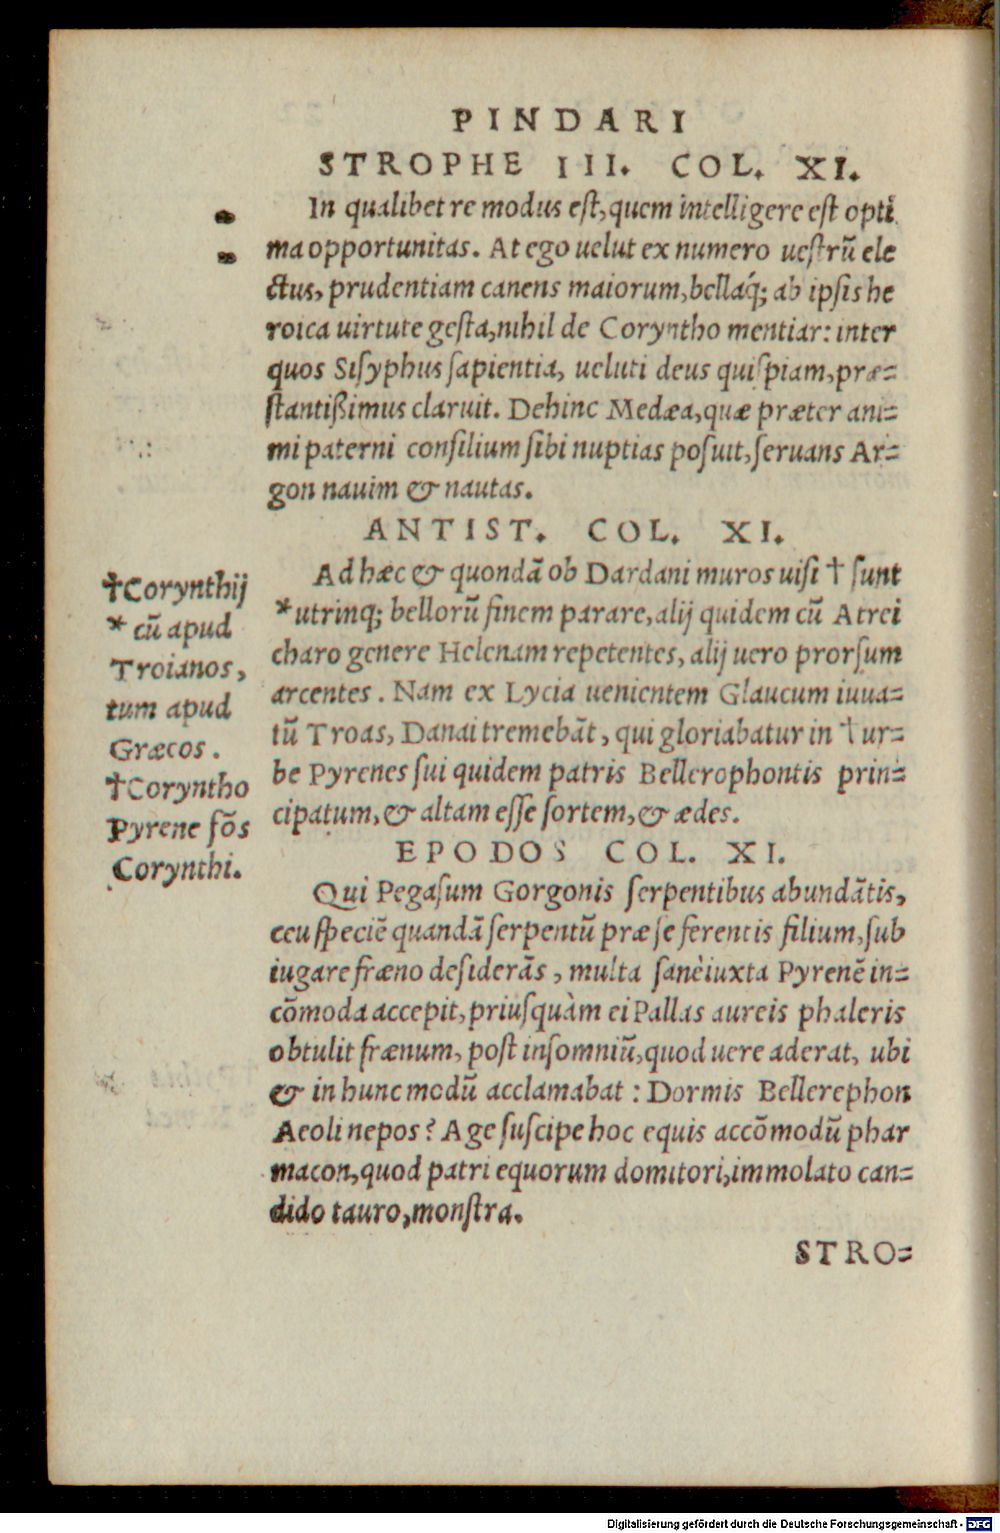 PINDARI
STROPHE III. COL. XI.
In qualibet re modus est, quem intelligere est opti
ma opportunitas. At ego uelut ex numero uestrū ele
ctus, prudentiam canens maiorum, bellaq́; ab ipsis he
roica uirtute gesta, nihil de Coryntho mentiar: inter
quos Sisyphus sapientia, ueluti deus quispiam, præ=
stantißimus claruit. Dehinc Medæa, quæ præter ani=
mi paterni consilium sibi nuptias posuit, seruans Ar=
gon nauim & nautas.
ANTIST. COL. XI.
Ad hæc & quondā ob Dardani muros uisi † sunt
*utrinq; bellorū finem parare, alij quidem cū Atrei
charo genere Helenam repetentes, alij uero prorsum
arcentes. Nam ex Lycia uenientem Glaucum iuua=
tū Troas, Danai tremebāt, qui gloriabatur in † ur=
be Pyrenes sui quidem patris Bellerophontis prin=
cipatum, & altam esse sortem, & ædes.
†Corynthij
* cū apud
Troianos,
tum apud
Græcos.
†Coryntho
Pyrene fōs
Corynthi.
EPODOS COL. XI.
Qui Pegasum Gorgonis serpentibus abundātis,
ceu speciē quandā serpentū præ se ferentis filium, sub
iugare fræno desiderās, multa sanè iuxta Pyrenē in=
cōmoda accepit, priusquàm ei Pallas aureis phaleris
obtulit frænum, post insomniū, quod uere aderat, ubi
& in hunc modū acclamabat : Dormis Bellerephon
Aeoli nepos? Age suscipe hoc equis accōmodū phar
macon, quod patri equorum domitori, immolato can=
dido tauro, monstra.
STRO=
Digitalisierung gefördert durch die Deutsche Forschungsgemeinschaft - DFG